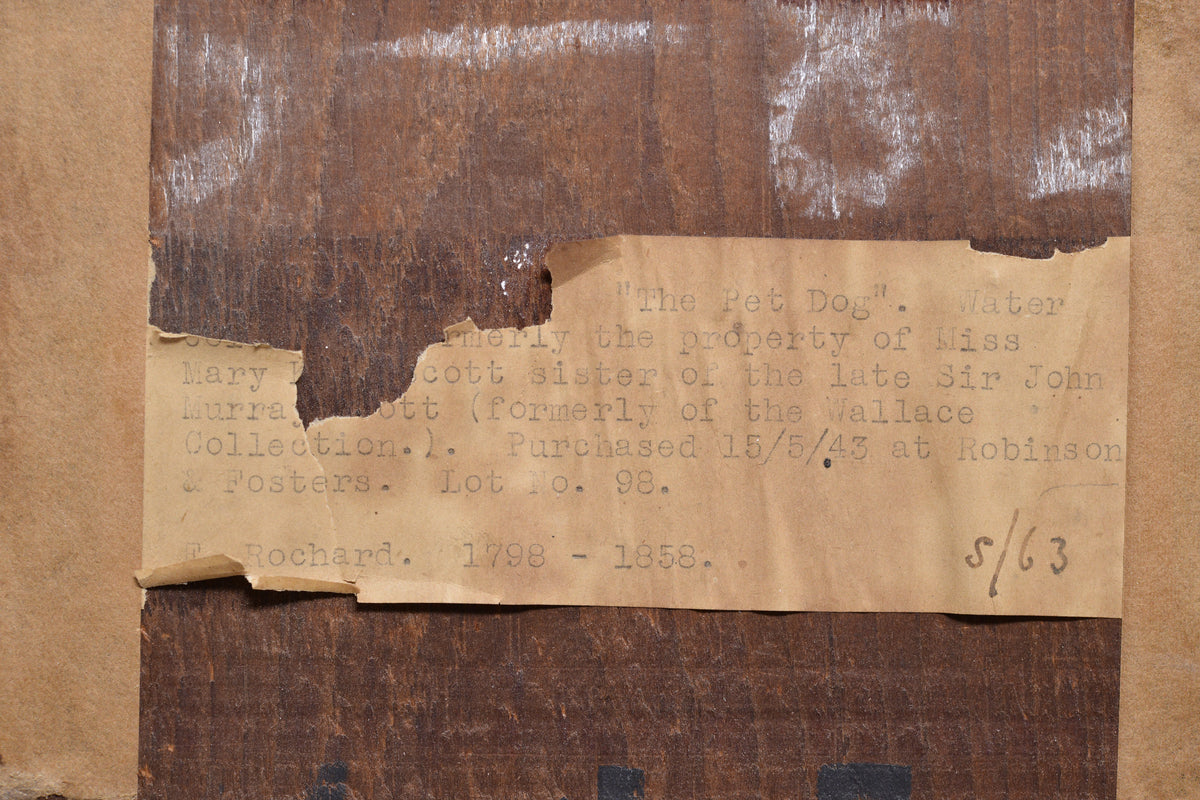 "The Pet Dog". Water
the property of Miss
Mary sister of the late Sir John
(formerly of the Wallace
Collection.). Purchased 15/5/43 at Robinson
& Fosters. Lot No. 98.
Rochard. 1798 - 1858.
S/63